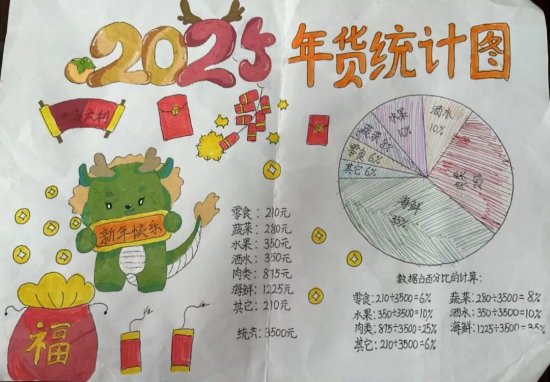 2025
年货统计图
大吉大利
新年快乐
福
零食：210元
蔬菜：280元
水果：350元
酒水：350元
肉类：875元
海鲜：1225元
其它：210元
统共：3500元
水果
10%
酒水
10%
蔬菜8%
零食6%
其它6%
肉类
海鲜
35%
数据占百分比的计算：
零食：210÷3500=6%
蔬菜：280÷3500=8%
水果：350÷3500=10%
酒水：350÷3500=10%
肉类：875÷3500=25%
海鲜：1225÷3500=35%
其它：210÷3500=6%